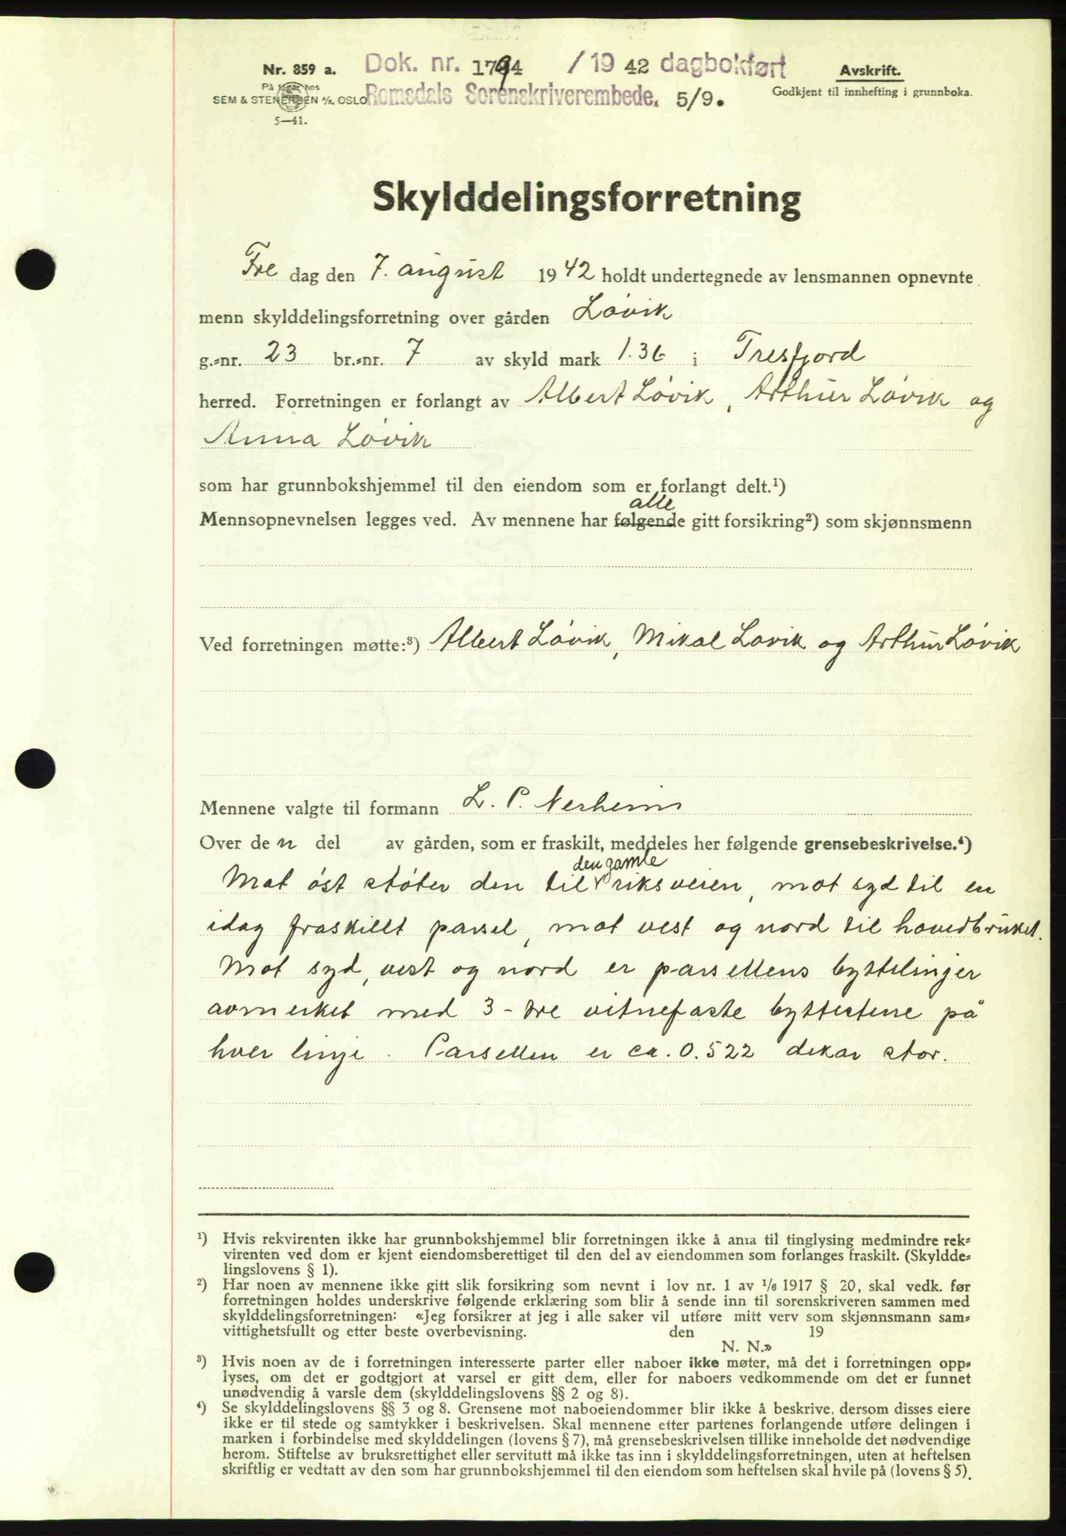 Nr. 859 a.
På lager hos
SEM & STENERSEN A/S, OSLO
5—41.
Dok. nr. 1794 /19 42 dagbokført
Romsdals Sorenskriverembede. 5/9.
Avskrift.
Godkjent til innhefting i grunnboka.
Skylddelingsforretning
Fre dag den 7. august 1942 holdt undertegnede av lensmannen opnevnte
menn skylddelingsforretning over gården Løvik
g.-nr. 23 br.-nr. 7 av skyld mark 1.36 i Tresfjord
herred. Forretningen er forlangt av Albert Løvik, Arthur Løvik og
Anna Løvik
som har grunnbokshjemmel til den eiendom som er forlangt delt.¹)
alle
Mennsopnevnelsen legges ved. Av mennene har følgende gitt forsikring²) som skjønnsmenn
Ved forretningen møtte:³) Albert Løvik, Mikal Løvik og Arthur Løvik
Mennene valgte til formann L. P. Nerheim
Over den del av gården, som er fraskilt, meddeles her følgende grensebeskrivelse.⁴)
den gamle
Mot øst støter den til riksveien, mot syd til en
idag fraskillt parsel, mot vest og nord til hovedbruket.
Mot syd, vest og nord er parsellens byttelinjer
avmerket med 3 - tre vitnefaste byttestene på
hver linje. Parsellen er ca. 0.522 dekar stor.
¹) Hvis rekvirenten ikke har grunnbokshjemmel blir forretningen ikke å anta til tinglysing medmindre rek-
virenten ved dom er kjent eiendomsberettiget til den del av eiendommen som forlanges fraskilt. (Skyldde-
lingslovens § 1).
²) Har noen av mennene ikke gitt slik forsikring som nevnt i lov nr. 1 av 1/6 1917 § 20, skal vedk. før
forretningen holdes underskrive følgende erklæring som blir å sende inn til sorenskriveren sammen med
skylddelingsforretningen: «Jeg forsikrer at jeg i alle saker vil utføre mitt verv som skjønnsmann sam-
vittighetsfullt og etter beste overbevisning. den 19
N. N.»
³) Hvis noen av de i forretningen interesserte parter eller naboer ikke møter, må det i forretningen opp-
lyses, om det er godtgjort at varsel er gitt dem, eller for naboers vedkommende om det er funnet
unødvendig å varsle dem (skylddelingslovens §§ 2 og 8).
⁴) Se skylddelingslovens §§ 3 og 8. Grensene mot naboeiendommer blir ikke å beskrive, dersom disses eiere
ikke er til stede og samtykker i beskrivelsen. Skal mennene etter partenes forlangende utføre delingen i
marken i forbindelse med skylddelingen (lovens § 7), må grensebeskrivelsen tillike inneholde det nødvendige
herom. Stiftelse av bruksrettighet eller servitutt må ikke tas inn i skylddelingsforretningen, uten at heftelsen
skriftlig er vedtatt av den som har grunnbokshjemmel til den eiendom som heftelsen skal hvile på (lovens § 5).